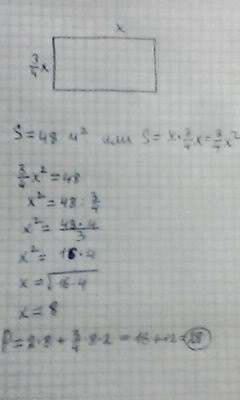 x
3/4 x
S = 48 м² или S = x · 3/4 x = 3/4 x²
3/4 x² = 48
x² = 48 : 3/4
x² = 48 · 4 / 3
x² = 16 · 4
x = √16 · 4
x = 8
P = 2 · 8 + 3/4 · 8 · 2 = 16 + 12 = 28